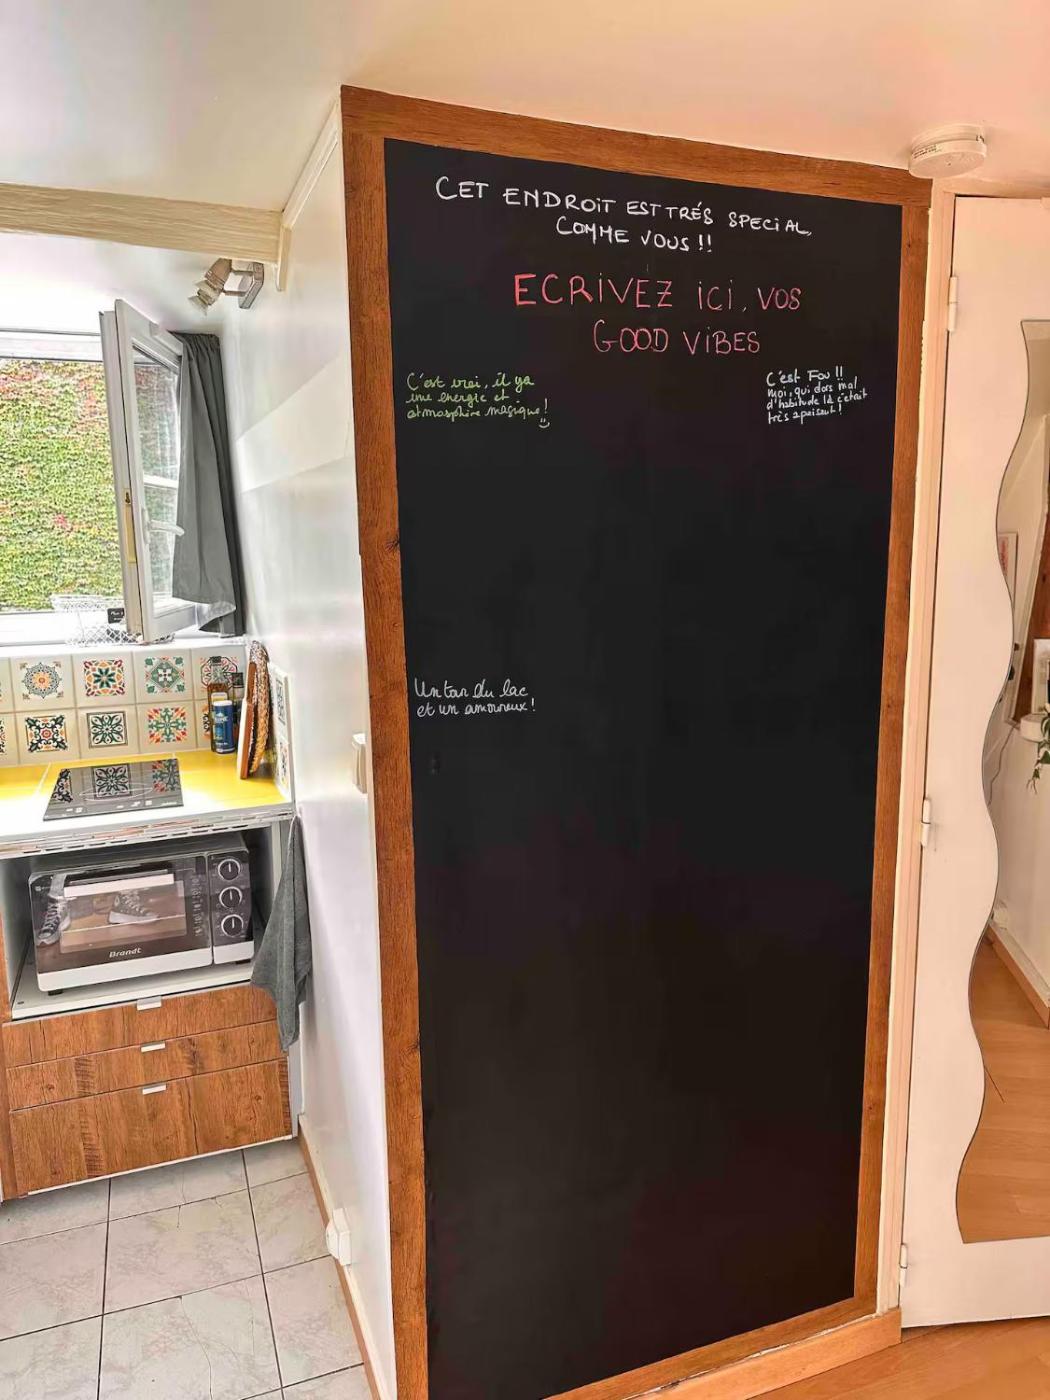 CET ENDROIT EST TRÉS SPECIAL,
COMME VOUS !!
ECRIVEZ ICI, VOS
GOOD VIBES
C'est vrai, il ya
une energie et
atmosphère magique !
C'est Fou !!
moi, qui dors mal
d'habitude là c'était
très apaisant !
Un tour du lac
et un amoureux !
Brandt